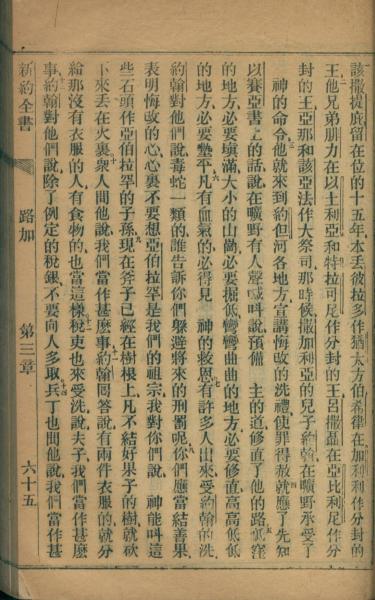 該撒提庇留在位的十五年本丟彼拉多作猶太方伯希律在加利利作分封的
王他兄弟腓力在以土利亞和特拉可尼作分封的王呂撒聶在亞比利尼作分
封的王亞那和該亞法作大祭司那時候撒加利亞的兒子約翰在曠野承受了
神的命令他就來到約但河各地方宣講悔改的洗禮使罪得赦就應了先知
以賽亞書上的話說在曠野有人聲喊叫說預備 主的道修直了他的路低窪
的地方必要塡滿大小的山崗必要掘低彎彎曲曲的地方必要修直高高低低
的地方必要墊平凡有血氣的必得見 神的救恩有許多人出來受約翰的洗
約翰對他們說毒蛇一類的誰告訴你們躱避將來的刑罰呢你們應當結善果
表明悔改的心心裏不要想亞伯拉罕是我們的祖宗我對你們說 神能叫這
些石頭作亞伯拉罕的子孫現在斧子已經在樹根上凡不結好果子的樹就砍
下來丟在火裏衆人間他說我們當作甚麽事約翰囘答說有兩件衣服的就分
給那沒有衣服的人有食物的也當這樣稅吏也來受洗說夫子我們當作甚麽
事約翰對他們說除了例定的稅銀不要向人多取兵丁也問他說我們當作甚
新約全書 路加 第三章 六十五